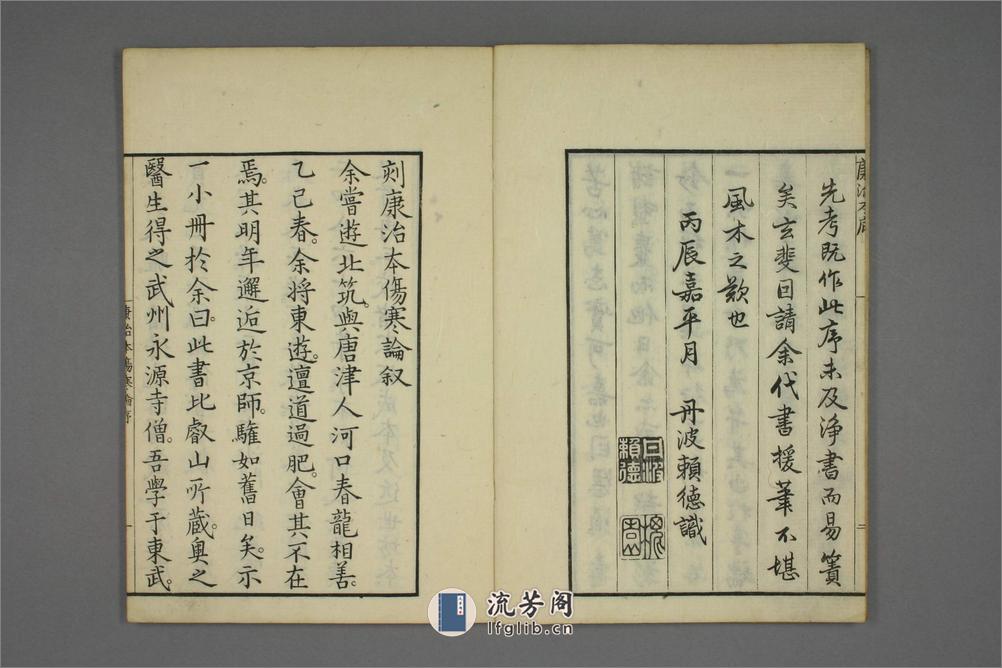 康治本序
先考既作此序未及淨書而易簀
矣玄斐回請余代書援筆不堪
風木之歎也
丙辰嘉平月 丹波賴德識
賴德
二
刻康治本傷寒論叙
余嘗遊北筑。與唐津人河口春龍相善。
乙巳春。余將東遊。邅道過肥。會其不在
焉。其明年邂逅於京師。驩如舊日矣。示
一小冊於余。曰。此書比叡山所藏。奥之
醫生得之武州永源寺僧。吾學于東武。
康治本傷寒論序
一
流芳阁
lfglib.cn